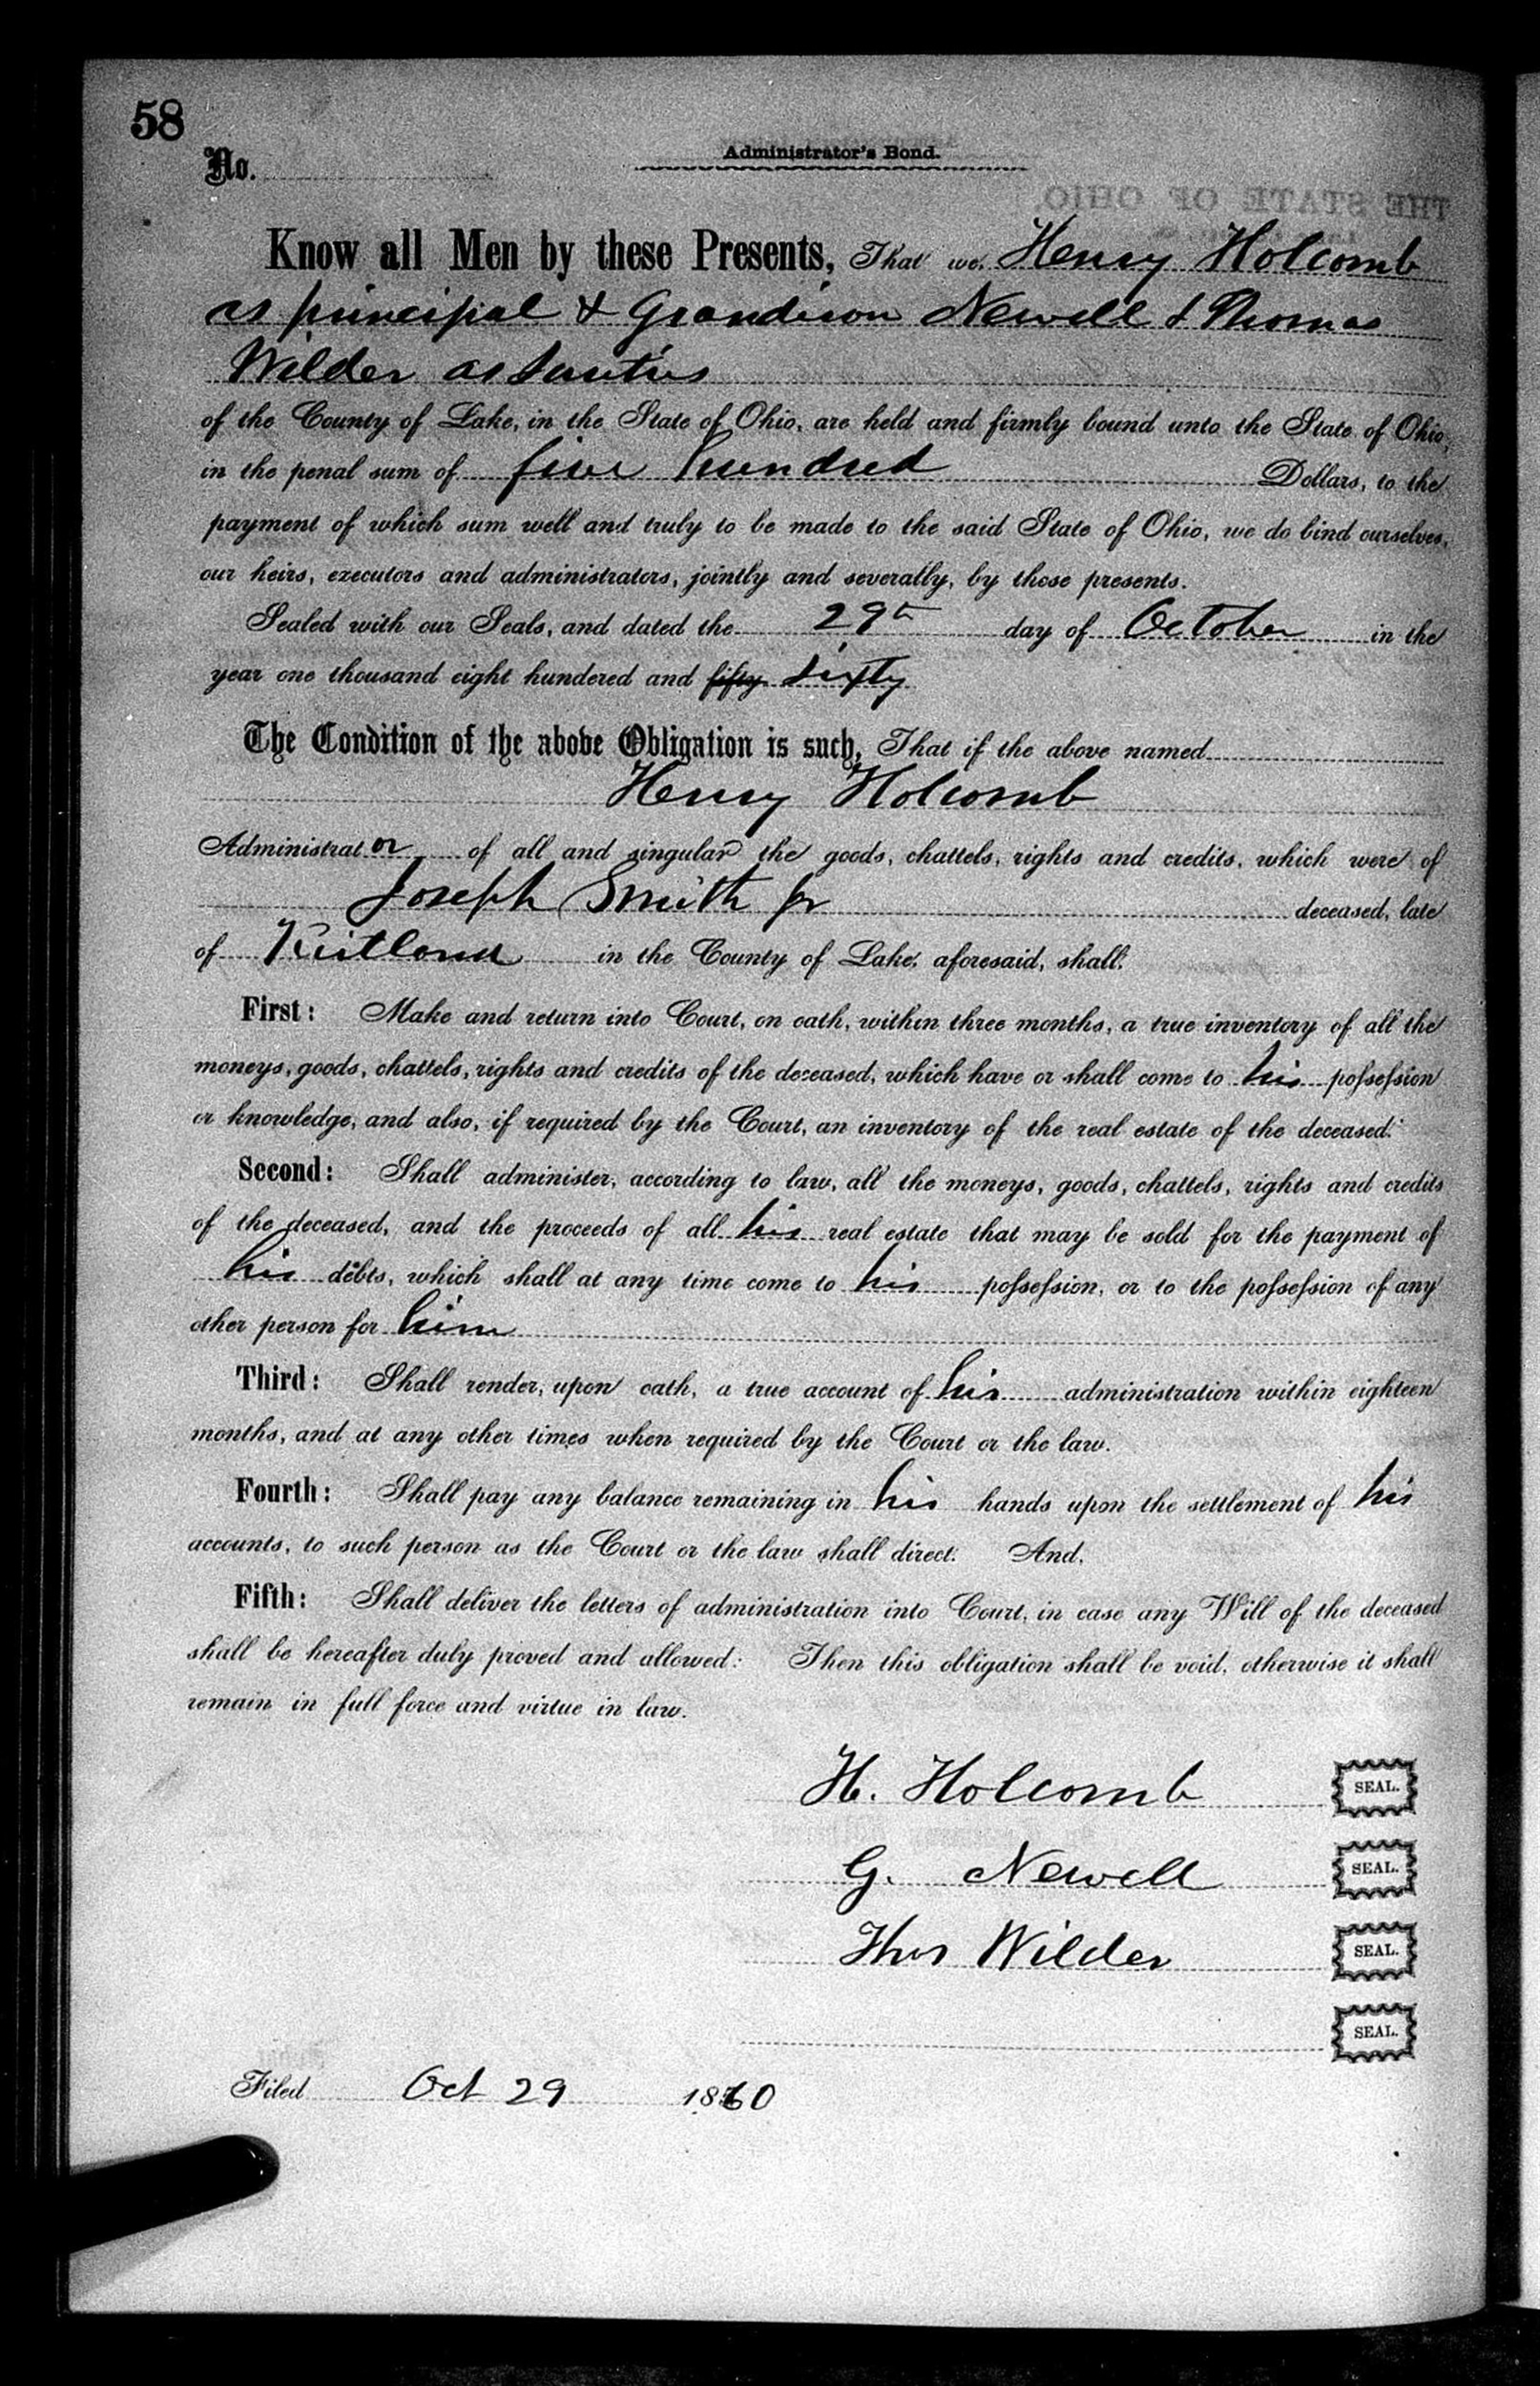 58
No.
Administrator's Bond.
THE STATE OF OHIO,
Know all Men by these Presents, That we, Henry Holcomb
as principal & Grandison Newell & Thomas
Wilder as Suretys
of the County of Lake, in the State of Ohio, are held and firmly bound unto the State of Ohio,
in the penal sum of five hundred Dollars, to the
payment of which sum well and truly to be made to the said State of Ohio, we do bind ourselves,
our heirs, executors and administrators, jointly and severally, by these presents.
Sealed with our Seals, and dated the 29th day of October in the
year one thousand eight hundered and fifty sixty
The Condition of the above Obligation is such, That if the above named
Henry Holcomb
Administrator of all and singular the goods, chattels, rights and credits, which were of
Joseph Smith Jr deceased, late
of Kirtland in the County of Lake, aforesaid, shall:
First: Make and return into Court, on oath, within three months, a true inventory of all the
moneys, goods, chattels, rights and credits of the deceased, which have or shall come to his possession
or knowledge, and also, if required by the Court, an inventory of the real estate of the deceased:
Second: Shall administer, according to law, all the moneys, goods, chattels, rights and credits
of the deceased, and the proceeds of all his real estate that may be sold for the payment of
his debts, which shall at any time come to his possession, or to the possession of any
other person for him
Third: Shall render, upon oath, a true account of his administration within eighteen
months, and at any other times when required by the Court or the law.
Fourth: Shall pay any balance remaining in his hands upon the settlement of his
accounts, to such person as the Court or the law shall direct: And,
Fifth: Shall deliver the letters of administration into Court, in case any Will of the deceased
shall be hereafter duly proved and allowed: Then this obligation shall be void, otherwise it shall
remain in full force and virtue in law.
H. Holcomb SEAL.
G. Newell SEAL.
Thos Wilder SEAL.
SEAL.
Filed Oct 29 1860